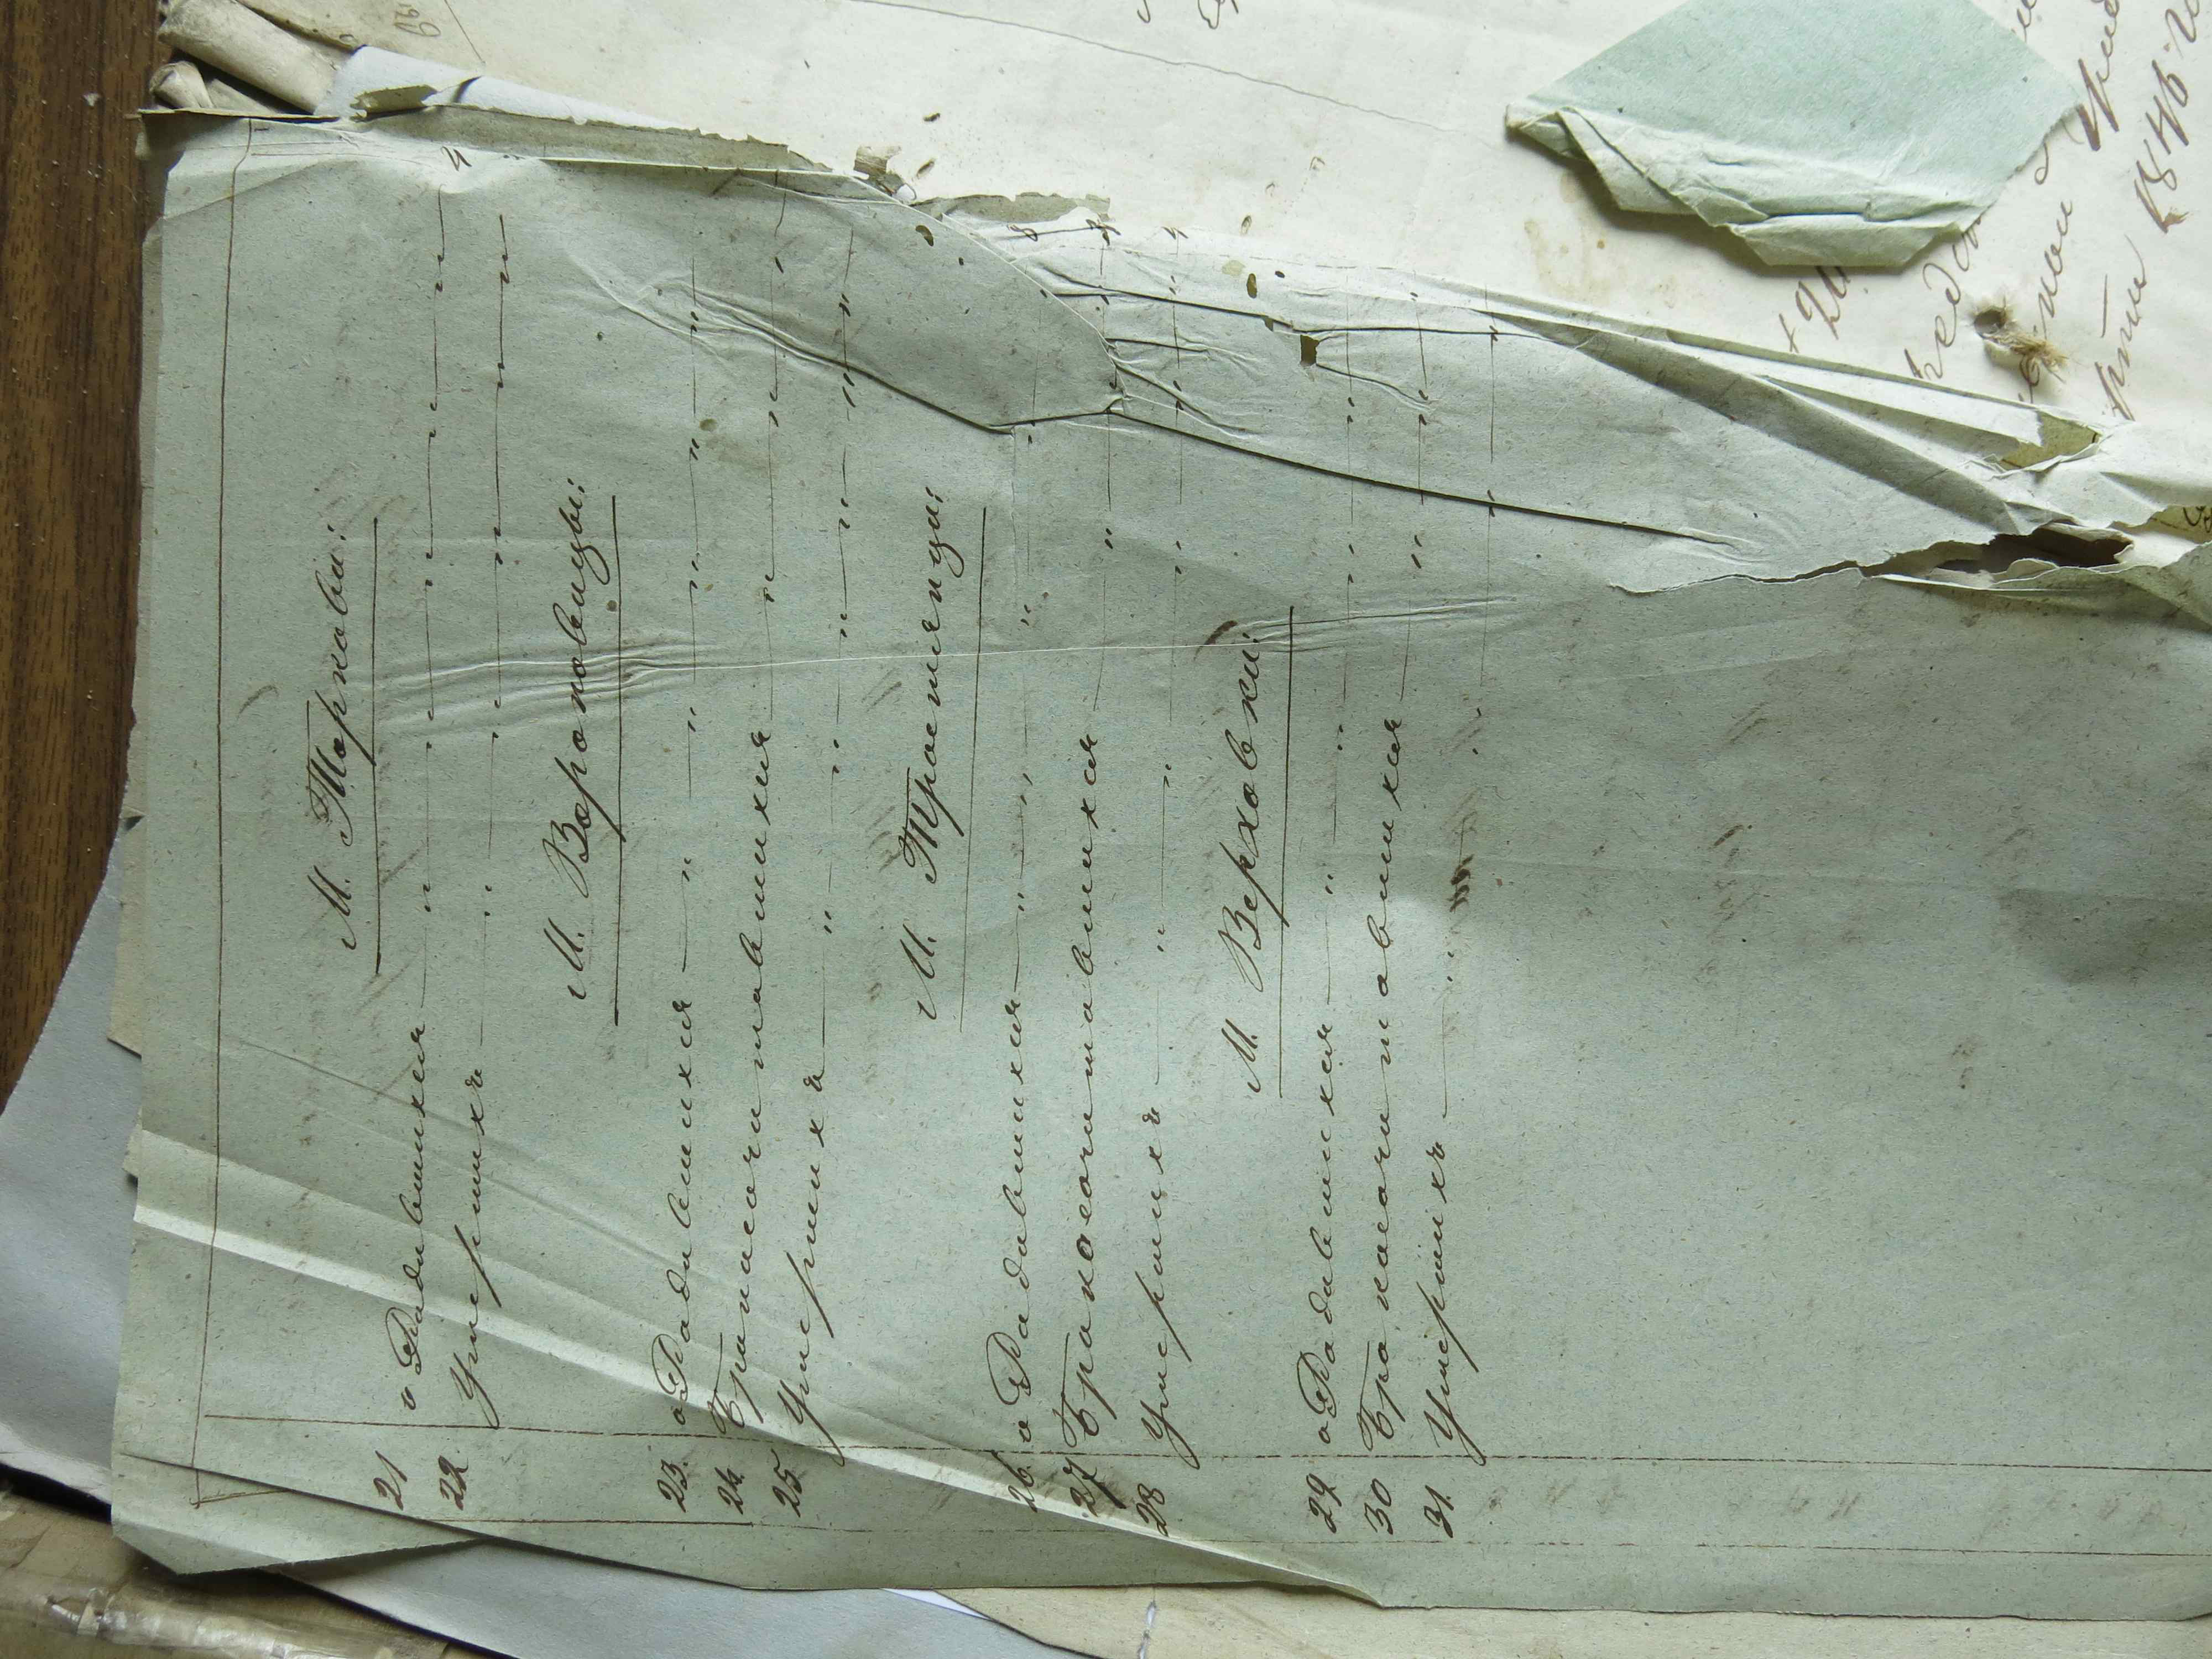 М. Торкова:
21 о Радившихся " " " " " 4
22. Умершихъ " " " " "
М. Вороновицы:
23. о Радившихся " " " " "
24. Бракосочитавшихся " " "
25 Умершихъ " " " " " "
М. Тростянца:
26. о Радившихся " " " " 8
27 Бракосочитавшихся " "
28 Умершихъ " " " " 4
М. Верховки:
29. о Радившихся " " " "
30 Бракосочитавшихся " "
31. Умершихъ " " "